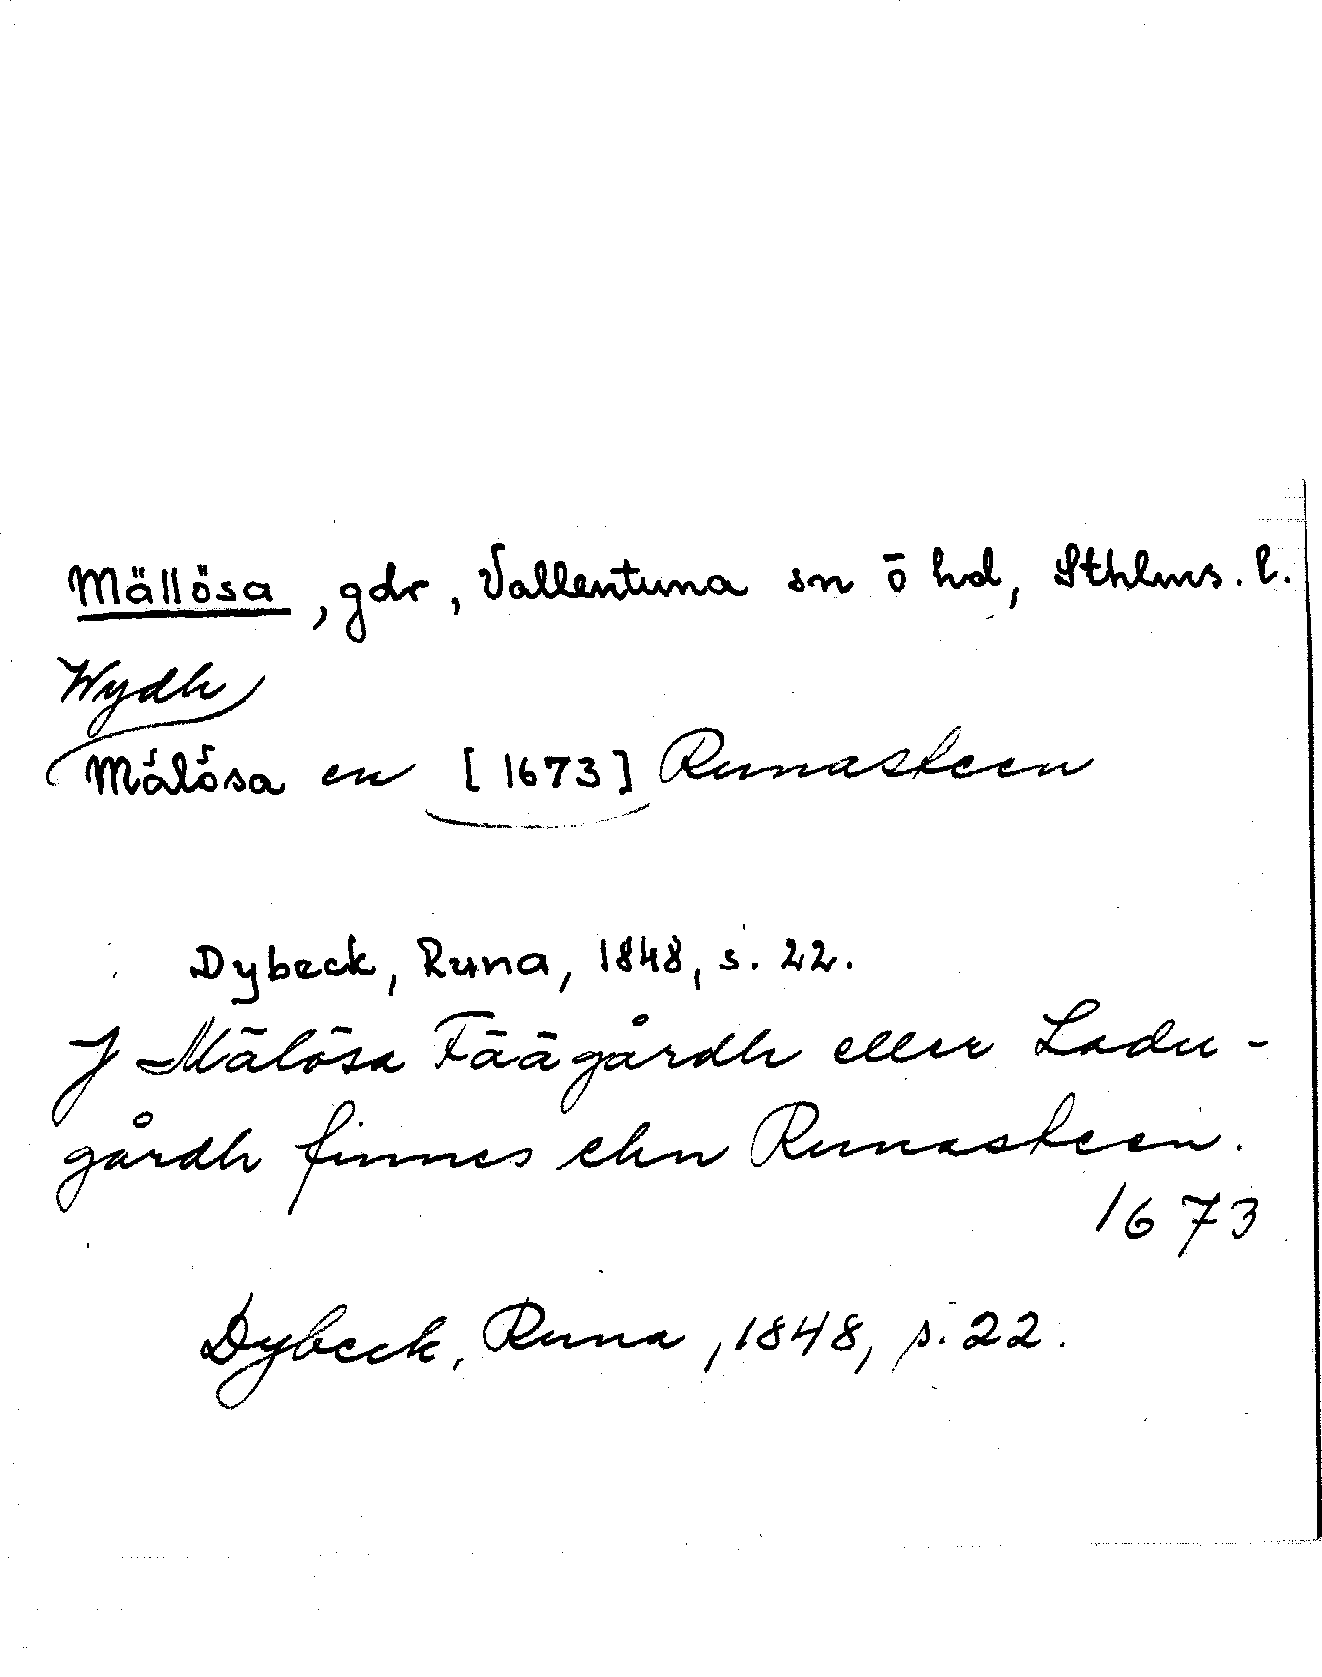 Mällösa, gdr, Vallentuna sn ō hd, Sthlms. l.
Wydh
Mälösa en [1673] Runasteen
Dybeck, Runa, 1848, s. 22.
J Mälösa Fäägårdh eller Ladu-
gårdh finnes ehn Runasteen.
1673
Dybeck, Runa, 1848, s. 22.